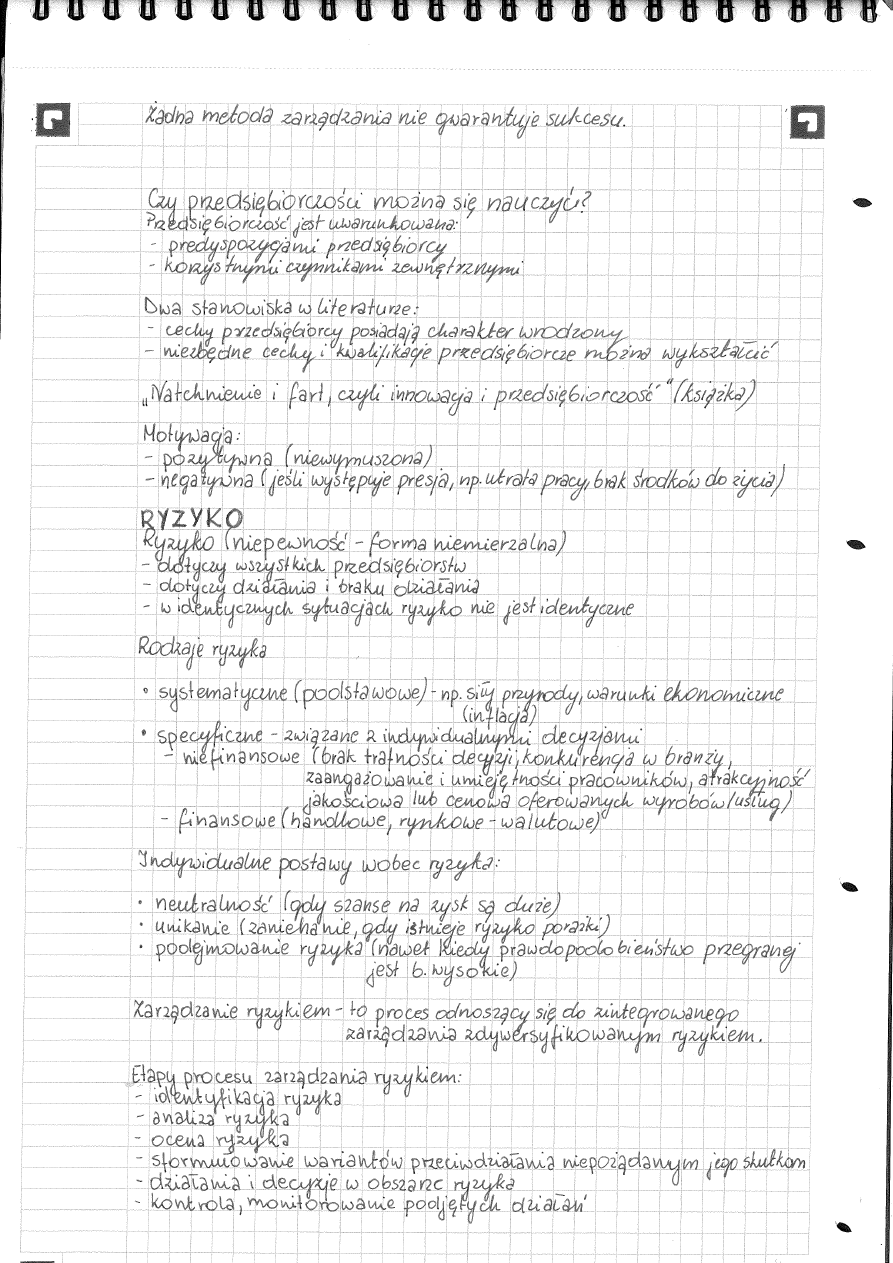 Żadna metoda zarządzania nie gwarantuje sukcesu.
Czy przedsiębiorczości można się nauczyć?
Przedsiębiorczość jest uwarunkowana:
- predyspozycjami przedsiębiorcy
- korzystnymi czynnikami zewnętrznymi
Dwa stanowiska w literaturze:
- cechy przedsiębiorcy posiadają charakter wrodzony
- niezbędne cechy i kwalifikacje przedsiębiorcze można wykształcić
„Natchnienie i fart, czyli innowacja i przedsiębiorczość" (książka)
Motywacja:
- pozytywna (niewymuszona)
- negatywna (jeśli występuje presja, np. utrata pracy, brak środków do życia)
RYZYKO
Ryzyko (niepewność - forma niemierzalna)
- dotyczy wszystkich przedsiębiorstw
- dotyczy działania i braku działania
- w identycznych sytuacjach ryzyko nie jest identyczne
Rodzaje ryzyka
• systematyczne (podstawowe) - np. siły przyrody, warunki ekonomiczne
(inflacja)
• specyficzne - związane z indywidualnymi decyzjami
- niefinansowe (brak trafności decyzji, konkurencja w branży,
zaangażowanie i umiejętności pracowników, atrakcyjność
jakościowa lub cenowa oferowanych wyrobów/usług)
- finansowe (handlowe, rynkowe - walutowe)
Indywidualne postawy wobec ryzyka:
• neutralność (gdy szanse na zysk są duże)
• unikanie (zaniehanie, gdy istnieje ryzyko porażki)
• podejmowanie ryzyka (nawet kiedy prawdopodobieństwo przegranej
jest b. wysokie)
Zarządzanie ryzykiem - to proces odnoszący się do zintegrowanego
zarządzania zdywersyfikowanym ryzykiem.
Etapy procesu zarządzania ryzykiem:
- identyfikacja ryzyka
- analiza ryzyka
- ocena ryzyka
- sformułowanie wariantów przeciwdziałania niepożądanym jego skutkom
- działania i decyzje w obszarze ryzyka
- kontrola, monitorowanie podjętych działań